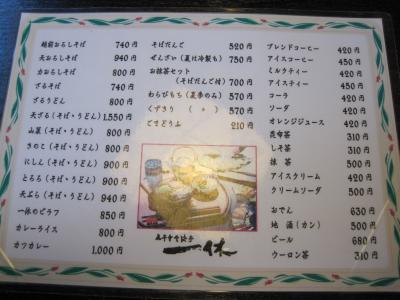 越前おろしそば 740円
天おろしそば 940円
力おろしそば 800円
ざるそば 740円
ざるうどん 800円
天ざる(そば・うどん) 1,550円
山菜(そば・うどん) 800円
きのこ(そば・うどん) 800円
にしん(そば・うどん) 900円
とろろ(そば・うどん) 900円
天ぷら(そば・うどん) 940円
一休のピラフ 850円
カレーライス 800円
カツカレー 1,000円
そばだんご 520円
ぜんざい(夏は冷製も) 750円
お抹茶セット
(そばだんご付) 700円
わらびもち(夏季のみ) 570円
くずきり(〃) 570円
ごまどうふ 210円
一休
ブレンドコーヒー 420円
アイスコーヒー 450円
ミルクティー 420円
アイスティー 450円
コーラ 420円
ソーダ 420円
オレンジジュース 420円
昆布茶 310円
しそ茶 310円
抹茶 500円
アイスクリーム 420円
クリームソーダ 500円
おでん 630円
地酒(カン) 500円
ビール 680円
ウーロン茶 310円